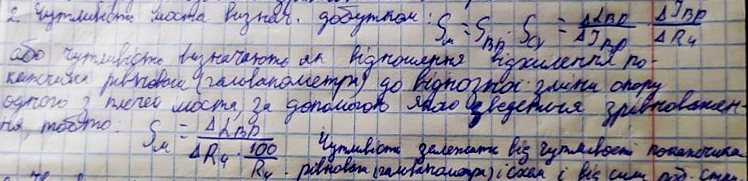 2. Чутливість моста визнач. добутком: Sм = Sвр · Sсх = ΔLвр/ΔIвр · ΔIвр/ΔR4
або чутливість визначають як відношення відхилення по-
кажчика рівноваги (гальванометра) до відносної зміни опору
одного з плечей моста, за допомогою якого зведення зрівноважен-
ня, тобто: Sм = ΔLвр / (ΔR4 · 100/R4) Чутливість залежить від чутливості показчика
рівноваги (гальванометра) і схеми і від